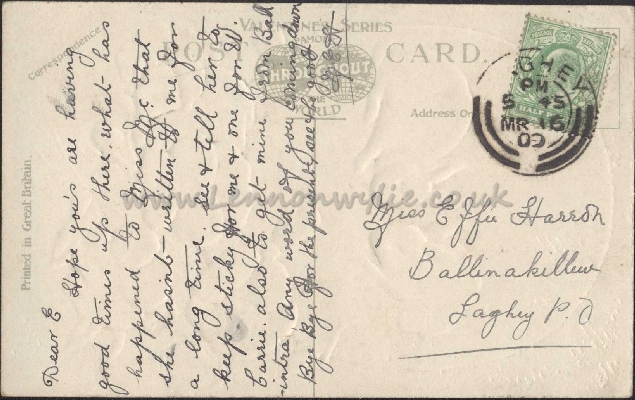 Correspondence
VALENTINE'S SERIES
FAMOUS THROUGHOUT THE WORLD
POST CARD.
Address Only
Printed in Great Britain.
Dear E
Hope you's are having
good times up there. what has
happened to Miss Mc that
she hasn't written to me for
a long time. See & tell her to
keep sticky for me & one for W.
Carrie. also to get mine from Bal
-intra. Any word of you coming down
Bye Bye for the present, see the good
GHEY
PM
5 45
MR 16
09
Miss Effie Harron
Ballinakillew
Laghey P.O
www.Lennonwylie.co.uk